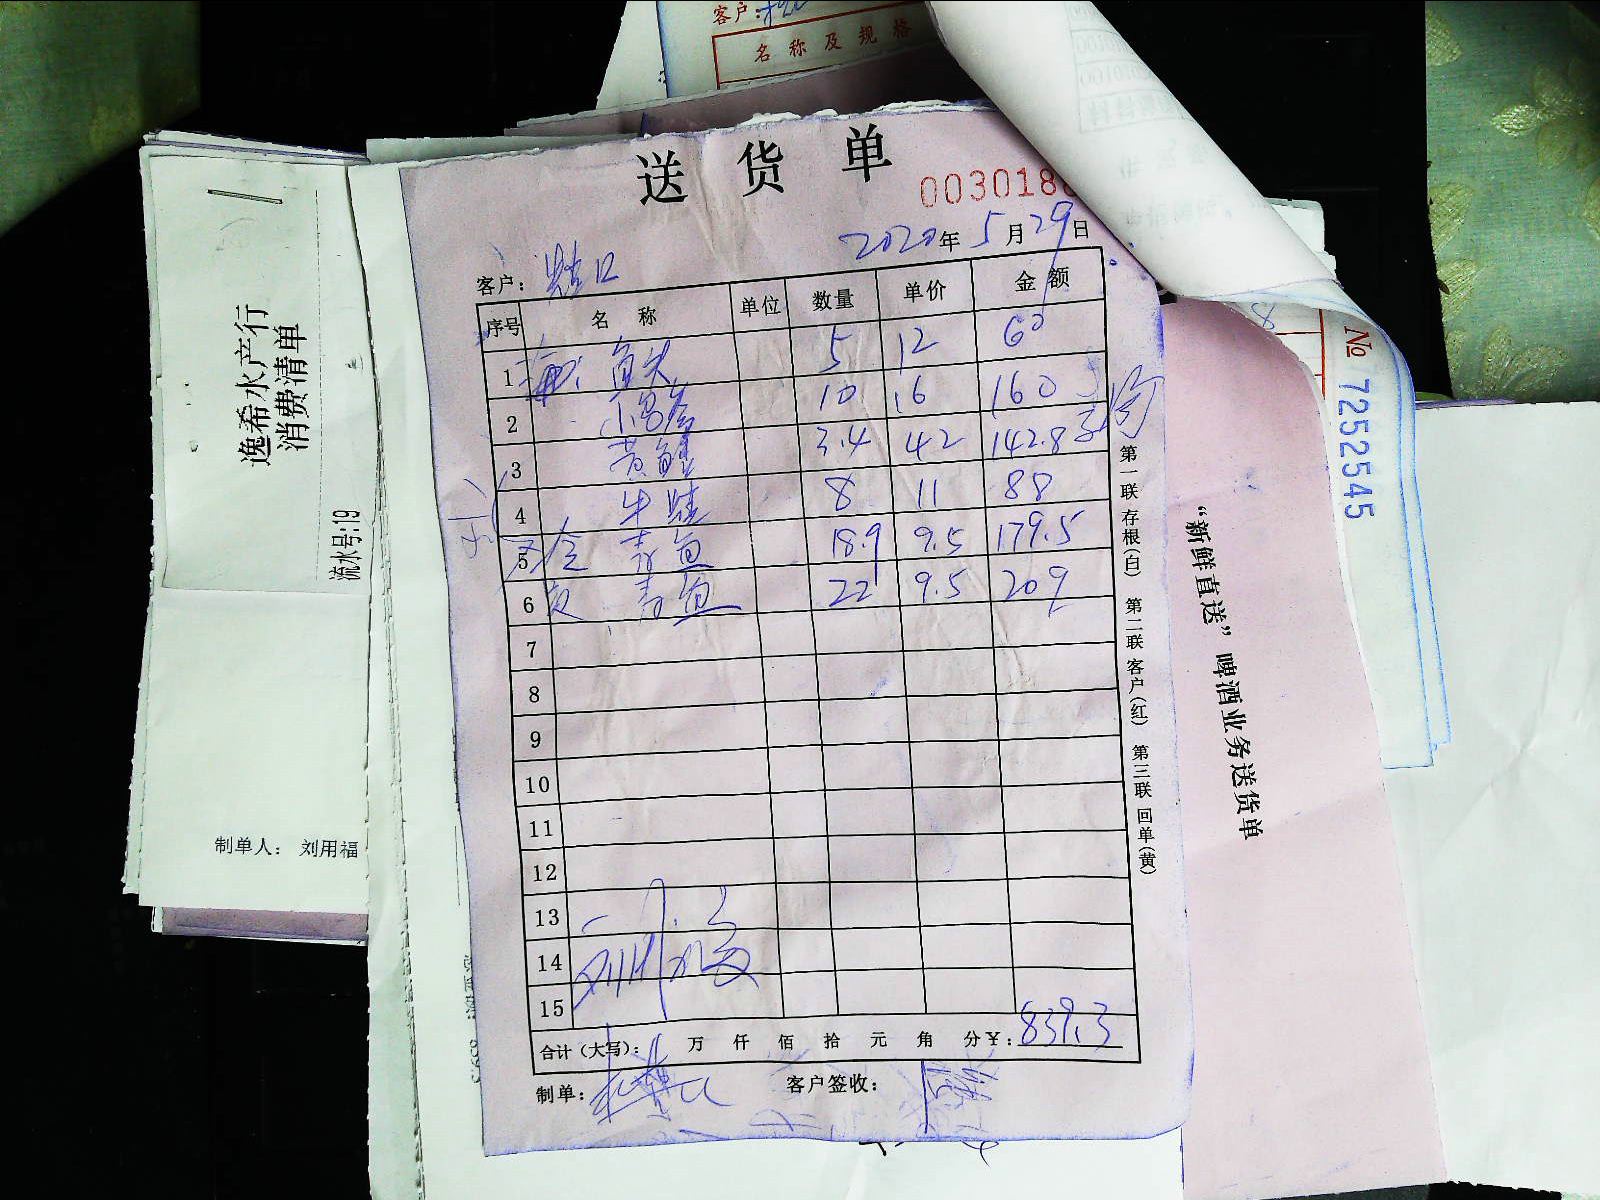 客户:
名称及规格
送货单
003018
2020年5月29日
客户:
序号 名称 单位 数量 单价 金额
1 鱼头 5 12 60
2 10 16 160
3 黄鳝 3.4 42 142.8
4 牛蛙 8 11 88
5 青鱼 18.9 9.5 179.5
6 青鱼 22 9.5 209
7
8
9
10
11
12
13
14
15
合计(大写): 万 仟 佰 拾 元 角 分¥: 839.3
制单: 客户签收:
第一联存根(白) 第二联客户(红) 第三联回单(黄)
逸希水产行
消费清单
流水号:19
制单人: 刘用福
№ 7252545
“新鲜直送”啤酒业务送货单